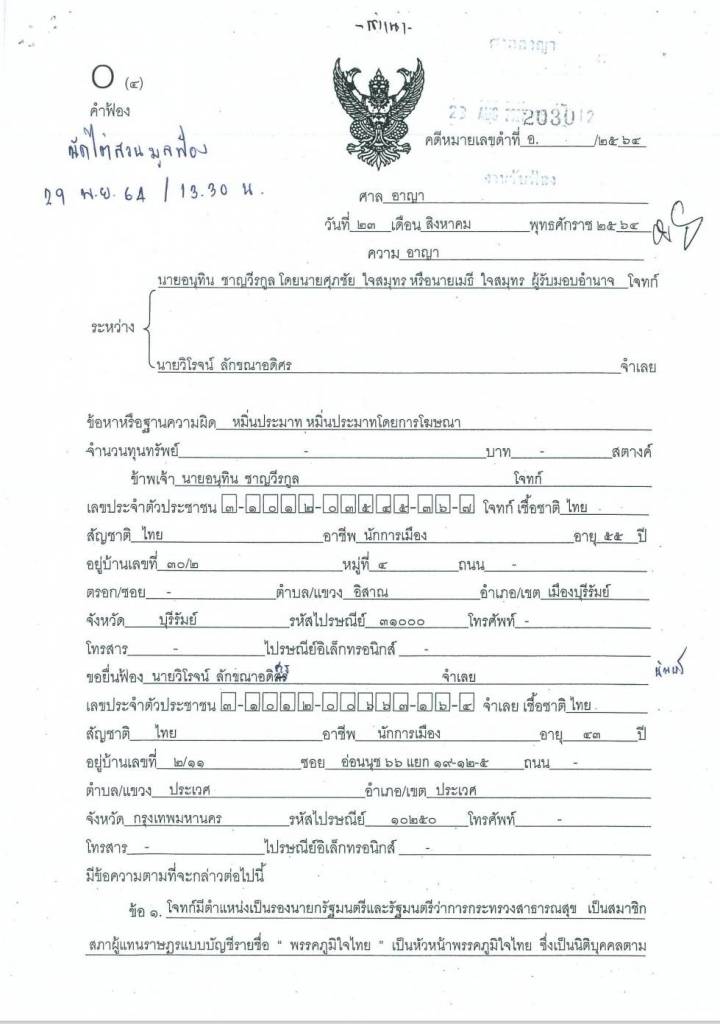 -สำเนา-
ศาลอาญา
O (๔)
คำฟ้อง
นัดไต่สวนมูลฟ้อง
29 พ.ย. 64 / 13.30 น.
2030
คดีหมายเลขดำที่ อ. /๒๕๖๔
งานรับฟ้อง
ศาล อาญา
วันที่ ๒๓ เดือน สิงหาคม พุทธศักราช ๒๕๖๔
ความ อาญา
นายอนุทิน ชาญวีรกูล โดยนายศุภชัย ใจสมุทร หรือนายเมธี ใจสมุทร ผู้รับมอบอำนาจ โจทก์
ระหว่าง
นายวิโรจน์ ลักขณาอดิศร จำเลย
ข้อหาหรือฐานความผิด หมิ่นประมาท หมิ่นประมาทโดยการโฆษณา
จำนวนทุนทรัพย์ - บาท - สตางค์
ข้าพเจ้า นายอนุทิน ชาญวีรกูล โจทก์
เลขประจำตัวประชาชน ๓-๑๐๑๒-๐๓๕๔๕-๓๖-๗ โจทก์ เชื้อชาติ ไทย
สัญชาติ ไทย อาชีพ นักการเมือง อายุ ๕๕ ปี
อยู่บ้านเลขที่ ๓๐/๒ หมู่ที่ ๔ ถนน -
ตรอก/ซอย - ตำบล/แขวง อิสาณ อำเภอ/เขต เมืองบุรีรัมย์
จังหวัด บุรีรัมย์ รหัสไปรษณีย์ ๓๑๐๐๐ โทรศัพท์ -
โทรสาร - ไปรษณีย์อิเล็กทรอนิกส์ -
ขอยื่นฟ้อง นายวิโรจน์ ลักขณาอดิศร จำเลย
เลขประจำตัวประชาชน ๓-๑๐๑๒-๐๐๖๖๓-๑๖-๔ จำเลย เชื้อชาติ ไทย
สัญชาติ ไทย อาชีพ นักการเมือง อายุ ๔๓ ปี
อยู่บ้านเลขที่ ๒/๑๑ ซอย อ่อนนุช ๖๖ แยก ๑๙-๑๒-๕ ถนน -
ตำบล/แขวง ประเวศ อำเภอ/เขต ประเวศ
จังหวัด กรุงเทพมหานคร รหัสไปรษณีย์ ๑๐๒๕๐ โทรศัพท์ -
โทรสาร - ไปรษณีย์อิเล็กทรอนิกส์ -
มีข้อความตามที่จะกล่าวต่อไปนี้
ข้อ ๑. โจทก์มีตำแหน่งเป็นรองนายกรัฐมนตรีและรัฐมนตรีว่าการกระทรวงสาธารณสุข เป็นสมาชิก
สภาผู้แทนราษฎรแบบบัญชีรายชื่อ “ พรรคภูมิใจไทย ” เป็นหัวหน้าพรรคภูมิใจไทย ซึ่งเป็นนิติบุคคลตาม